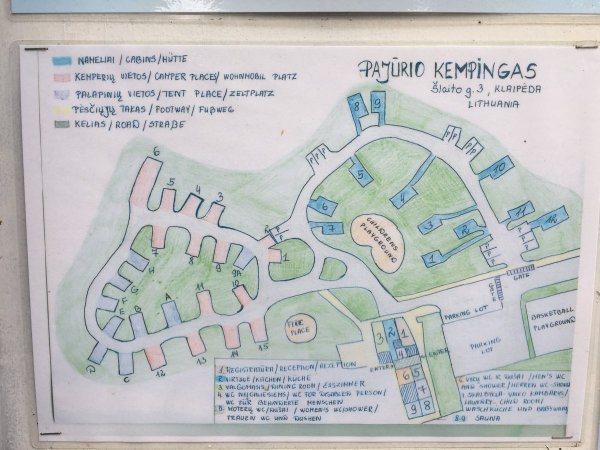 NAMELIAI / CABINS / HÜTTE
KEMPERIŲ VIETOS / CAMPER PLACES / WOHNMOBIL PLATZ
PALAPINIŲ VIETOS / TENT PLACE / ZELTPLATZ
PĖSČIŲJŲ TAKAS / FOOTWAY / FUßWEG
KELIAS / ROAD / STRAßE
PAJŪRIO KEMPINGAS
Šlaito g. 3, KLAIPĖDA
LITHUANIA
8 9
P P P
10
5
4
6
7
3 2
11 12
CHILDRENS PLAYGROUND
6
5 4 3
7 8 9
9A
10
1
H
G
F
E
B A
D C
11
12 13 14 15
FIRE PLACE
GATE
GATE
PARKING LOT
PARKING LOT
BASKETBALL PLAYGROUND
3 2 1
4
ENTER
ENTER
6 5
7
9 8
1 REGISTRATŪRA / RECEPTION / REZEPTION
2 VIRTUVĖ / KITCHEN / KÜCHE
3 VALGOMASIS / DINING ROOM / ESSZIMMER
4 WC NEĮGALIESIEMS / WC FOR DISABLED PERSON /
WC FÜR BEHINDERTE MENSCHEN
5 MOTERŲ WC / DUŠAI / WOMEN'S WC / SHOWER /
FRAUEN WC UND DUSHEN
6 VYRŲ WC IR DUŠAI / MEN'S WC
AND SHOWER / HERREN WC
7 SKALBYKLA - VAIKO KAMBARYS /
LAUNDRY - CHILD ROOM /
WASCHKÜCHE UND
8-9 SAUNA